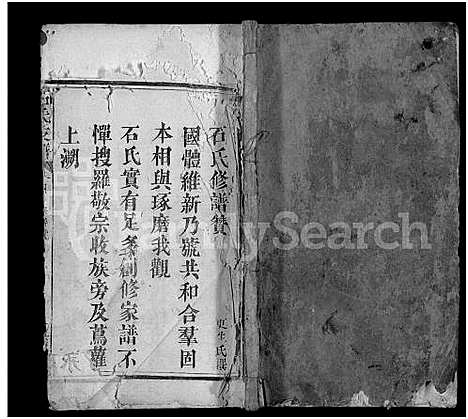 石氏修譜贊
更生氏撰
國體維新乃號共和合羣固
本相與琢磨我觀
石氏實有足多創修家譜不
憚搜羅敬宗收族旁及蔦蘿
上溯
MySearch